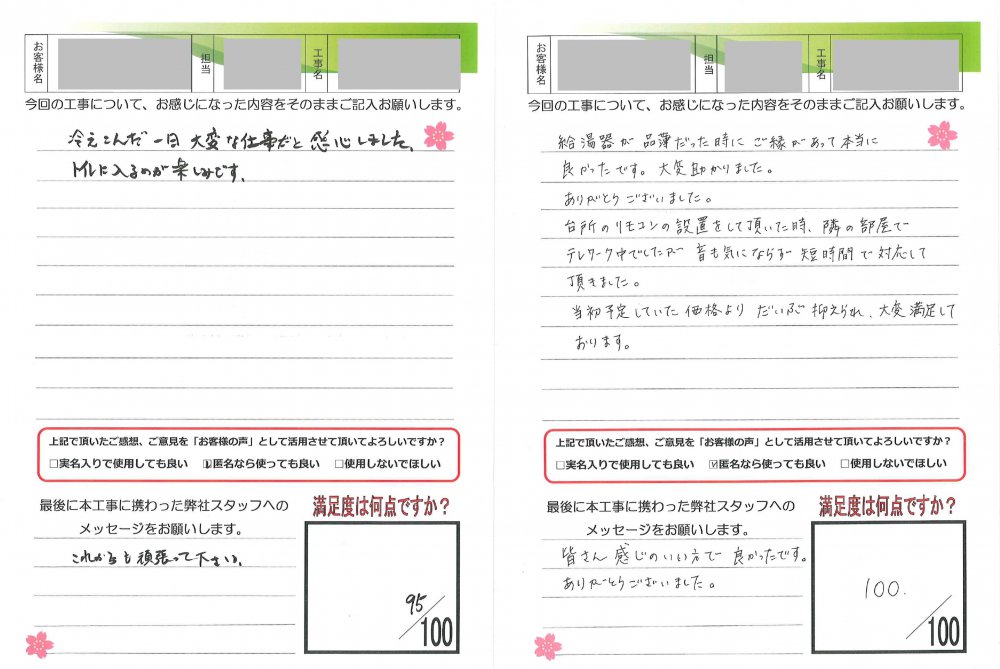 お客様名
担当
工事名
今回の工事について、お感じになった内容をそのままご記入お願いします。
冷えこんだ 一日 大変な仕事だと 感心しました。
トイレに入るのが 楽しみです。
上記で頂いたご感想、ご意見を「お客様の声」として活用させて頂いてよろしいですか？
□実名入りで使用しても良い ☑匿名なら使っても良い □使用しないでほしい
最後に本工事に携わった弊社スタッフへの
メッセージをお願いします。
これからも頑張って下さい。
満足度は何点ですか？
95/100
お客様名
担当
工事名
今回の工事について、お感じになった内容をそのままご記入お願いします。
給湯器が 品薄だった時に ご縁があって本当に
良かったです。大変助かりました。
ありがとうございました。
台所のリモコンの設置をして頂いた時、隣の部屋で
テレワーク中でしたが 音も気にならず 短時間で対応して
頂きました。
当初予定していた価格より だいぶ 抑えられ、大変満足して
おります。
上記で頂いたご感想、ご意見を「お客様の声」として活用させて頂いてよろしいですか？
□実名入りで使用しても良い ☑匿名なら使っても良い □使用しないでほしい
最後に本工事に携わった弊社スタッフへの
メッセージをお願いします。
皆さん 感じのいい方で 良かったです。
ありがとうございました。
満足度は何点ですか？
100./100